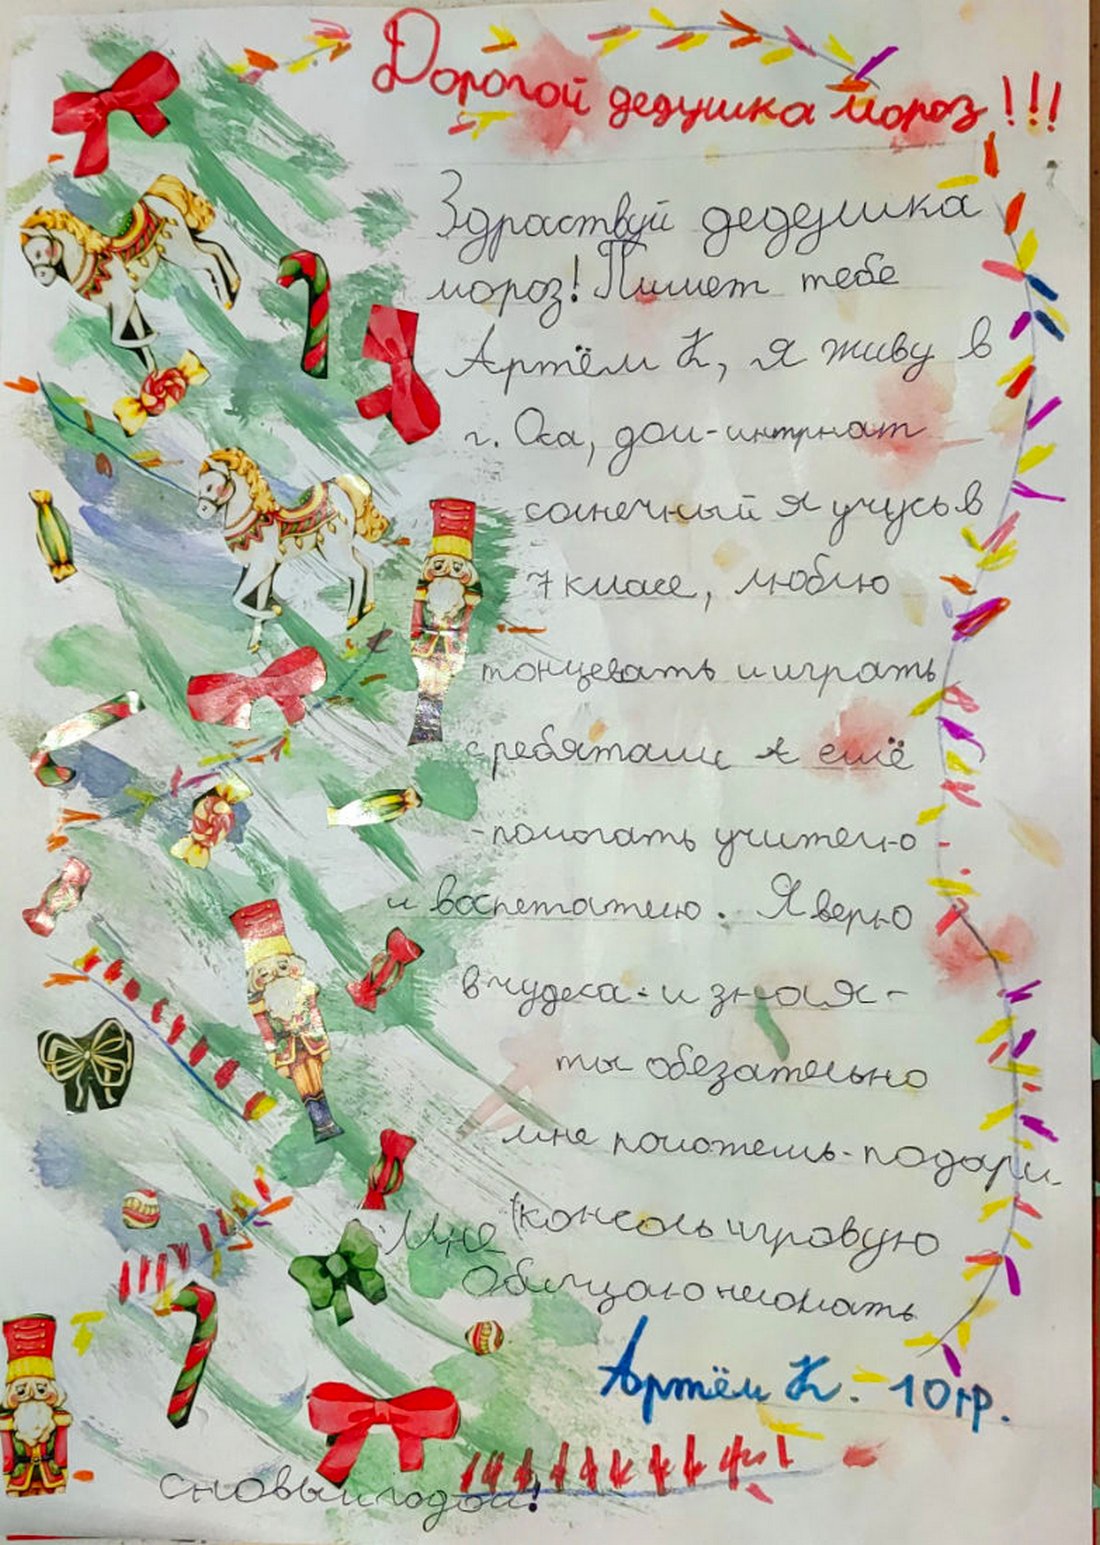 Дорогой дедушка мороз!!!
Здраствуй дедушка
мороз! Пишет тебе
Артём К, я живу в
г. Оса, дом-интрнат
солнечный я учусь в
7 класе, люблю
тонцевать и играть
с ребятами я ещё
-помогать учителю
и воспетателю. Я верю
в чудеса - и зная -
ты обезательно
мне поможешь - подари
Мне консоль игровую
Обищаю неломать
Артём К. - 10 гр.
с новым годом!